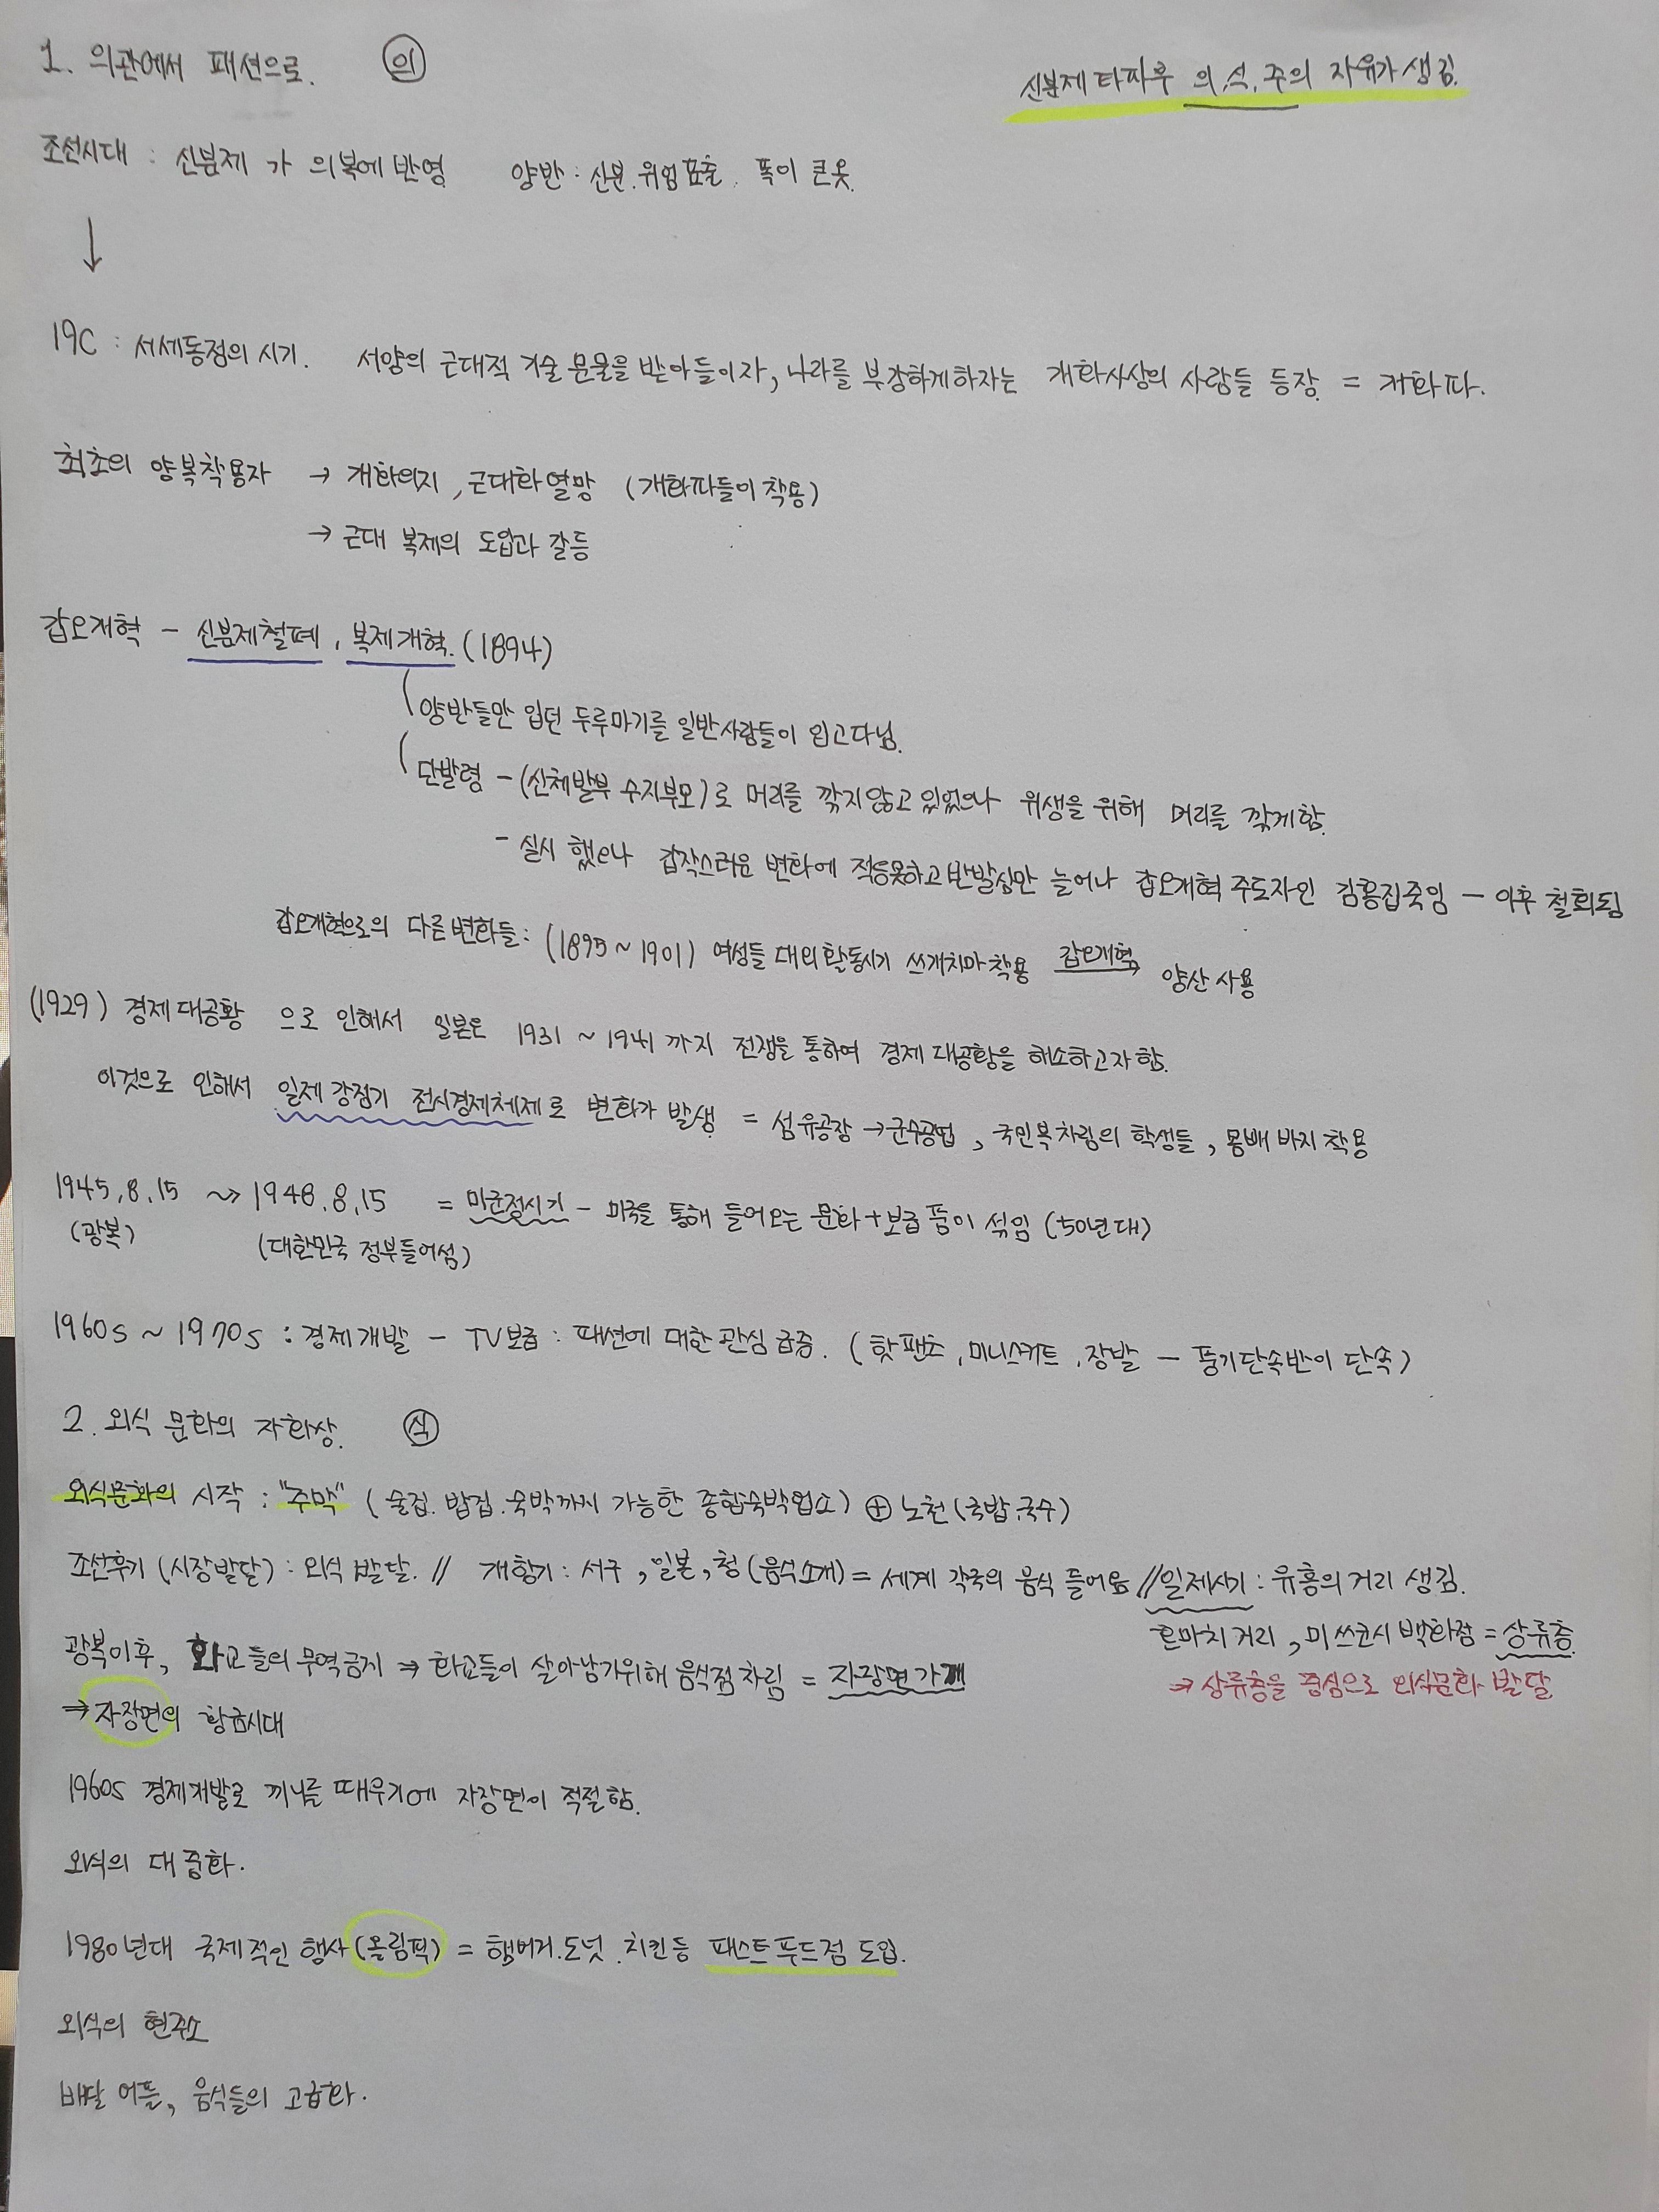 1. 의관에서 패션으로. 의
신분제 타파후 의, 식, 주의 자유가 생김.
조선시대 : 신분제 가 의복에 반영 양반 : 신분. 위엄 표출. 폭이 큰 옷.
↓
19C : 서세동점의 시기. 서양의 근대적 기술 문물을 받아들이자, 나라를 부강하게하자는 개화사상의 사람들 등장 = 개화파.
최초의 양복착용자 → 개화의지, 근대화열망 (개화파들이 착용)
→ 근대 복제의 도입과 갈등
갑오개혁 - 신분제철폐, 복제개혁. (1894)
양반들만 입던 두루마기를 일반사람들이 입고다님.
단발령 - (신체발부 수지부모)로 머리를 깎지않고 있었으나 위생을 위해 머리를 깎게함.
- 실시 했으나 갑작스러운 변화에 적응못하고 반발심만 늘어나 갑오개혁 주도자인 김홍집죽임 - 이후 철회됨
갑오개혁으로의 다른변화들 : (1895 ~ 1901) 여성들 대외활동시기 쓰개치마착용 갑오개혁→ 양산 사용
(1929) 경제대공황 으로 인해서 일본은 1931 ~ 1941 까지 전쟁을 통하여 경제 대공황을 해소하고자 함.
이것으로 인해서 일제 강점기 전시경제체제로 변화가 발생 = 섬유공장 → 군수공법, 국민복차림의 학생들, 몸빼 바지 착용
1945.8.15 ~> 1948.8.15 = 미군정시기 - 미국을 통해 들어오는 문화+보급품이 섞임 (50년대)
(광복) (대한민국 정부들어섬)
1960s ~ 1970s : 경제개발 - TV보급 : 패션에 대한 관심 급증. (핫팬츠, 미니스커트, 장발 - 풍기단속반이 단속)
2. 외식 문화의 자화상. 식
외식문화의 시작 : "주막" (술집. 밥집. 숙박까지 가능한 종합숙박업소) ⊕ 노천(국밥.국수)
조선후기 (시장발달) : 외식 발달. // 개항기 : 서구, 일본, 청 (음식소개) = 세계 각국의 음식 들어옴 // 일제시기 : 유흥의 거리 생김.
혼마치거리, 미쓰코시 백화점 = 상류층.
⇒ 상류층을 중심으로 외식문화 발달
광복이후, 화교들의 무역금지 ⇒ 화교들이 살아남기위해 음식점 차림 = 자장면가게
⇒ 자장면의 황금시대
1960s 경제개발로 끼니를 때우기에 자장면이 적절함.
외식의 대중화.
1980년대 국제적인 행사 (올림픽) = 햄버거.도넛. 치킨등 패스트푸드점 도입.
외식의 현주소
배달 어플, 음식들의 고급화.